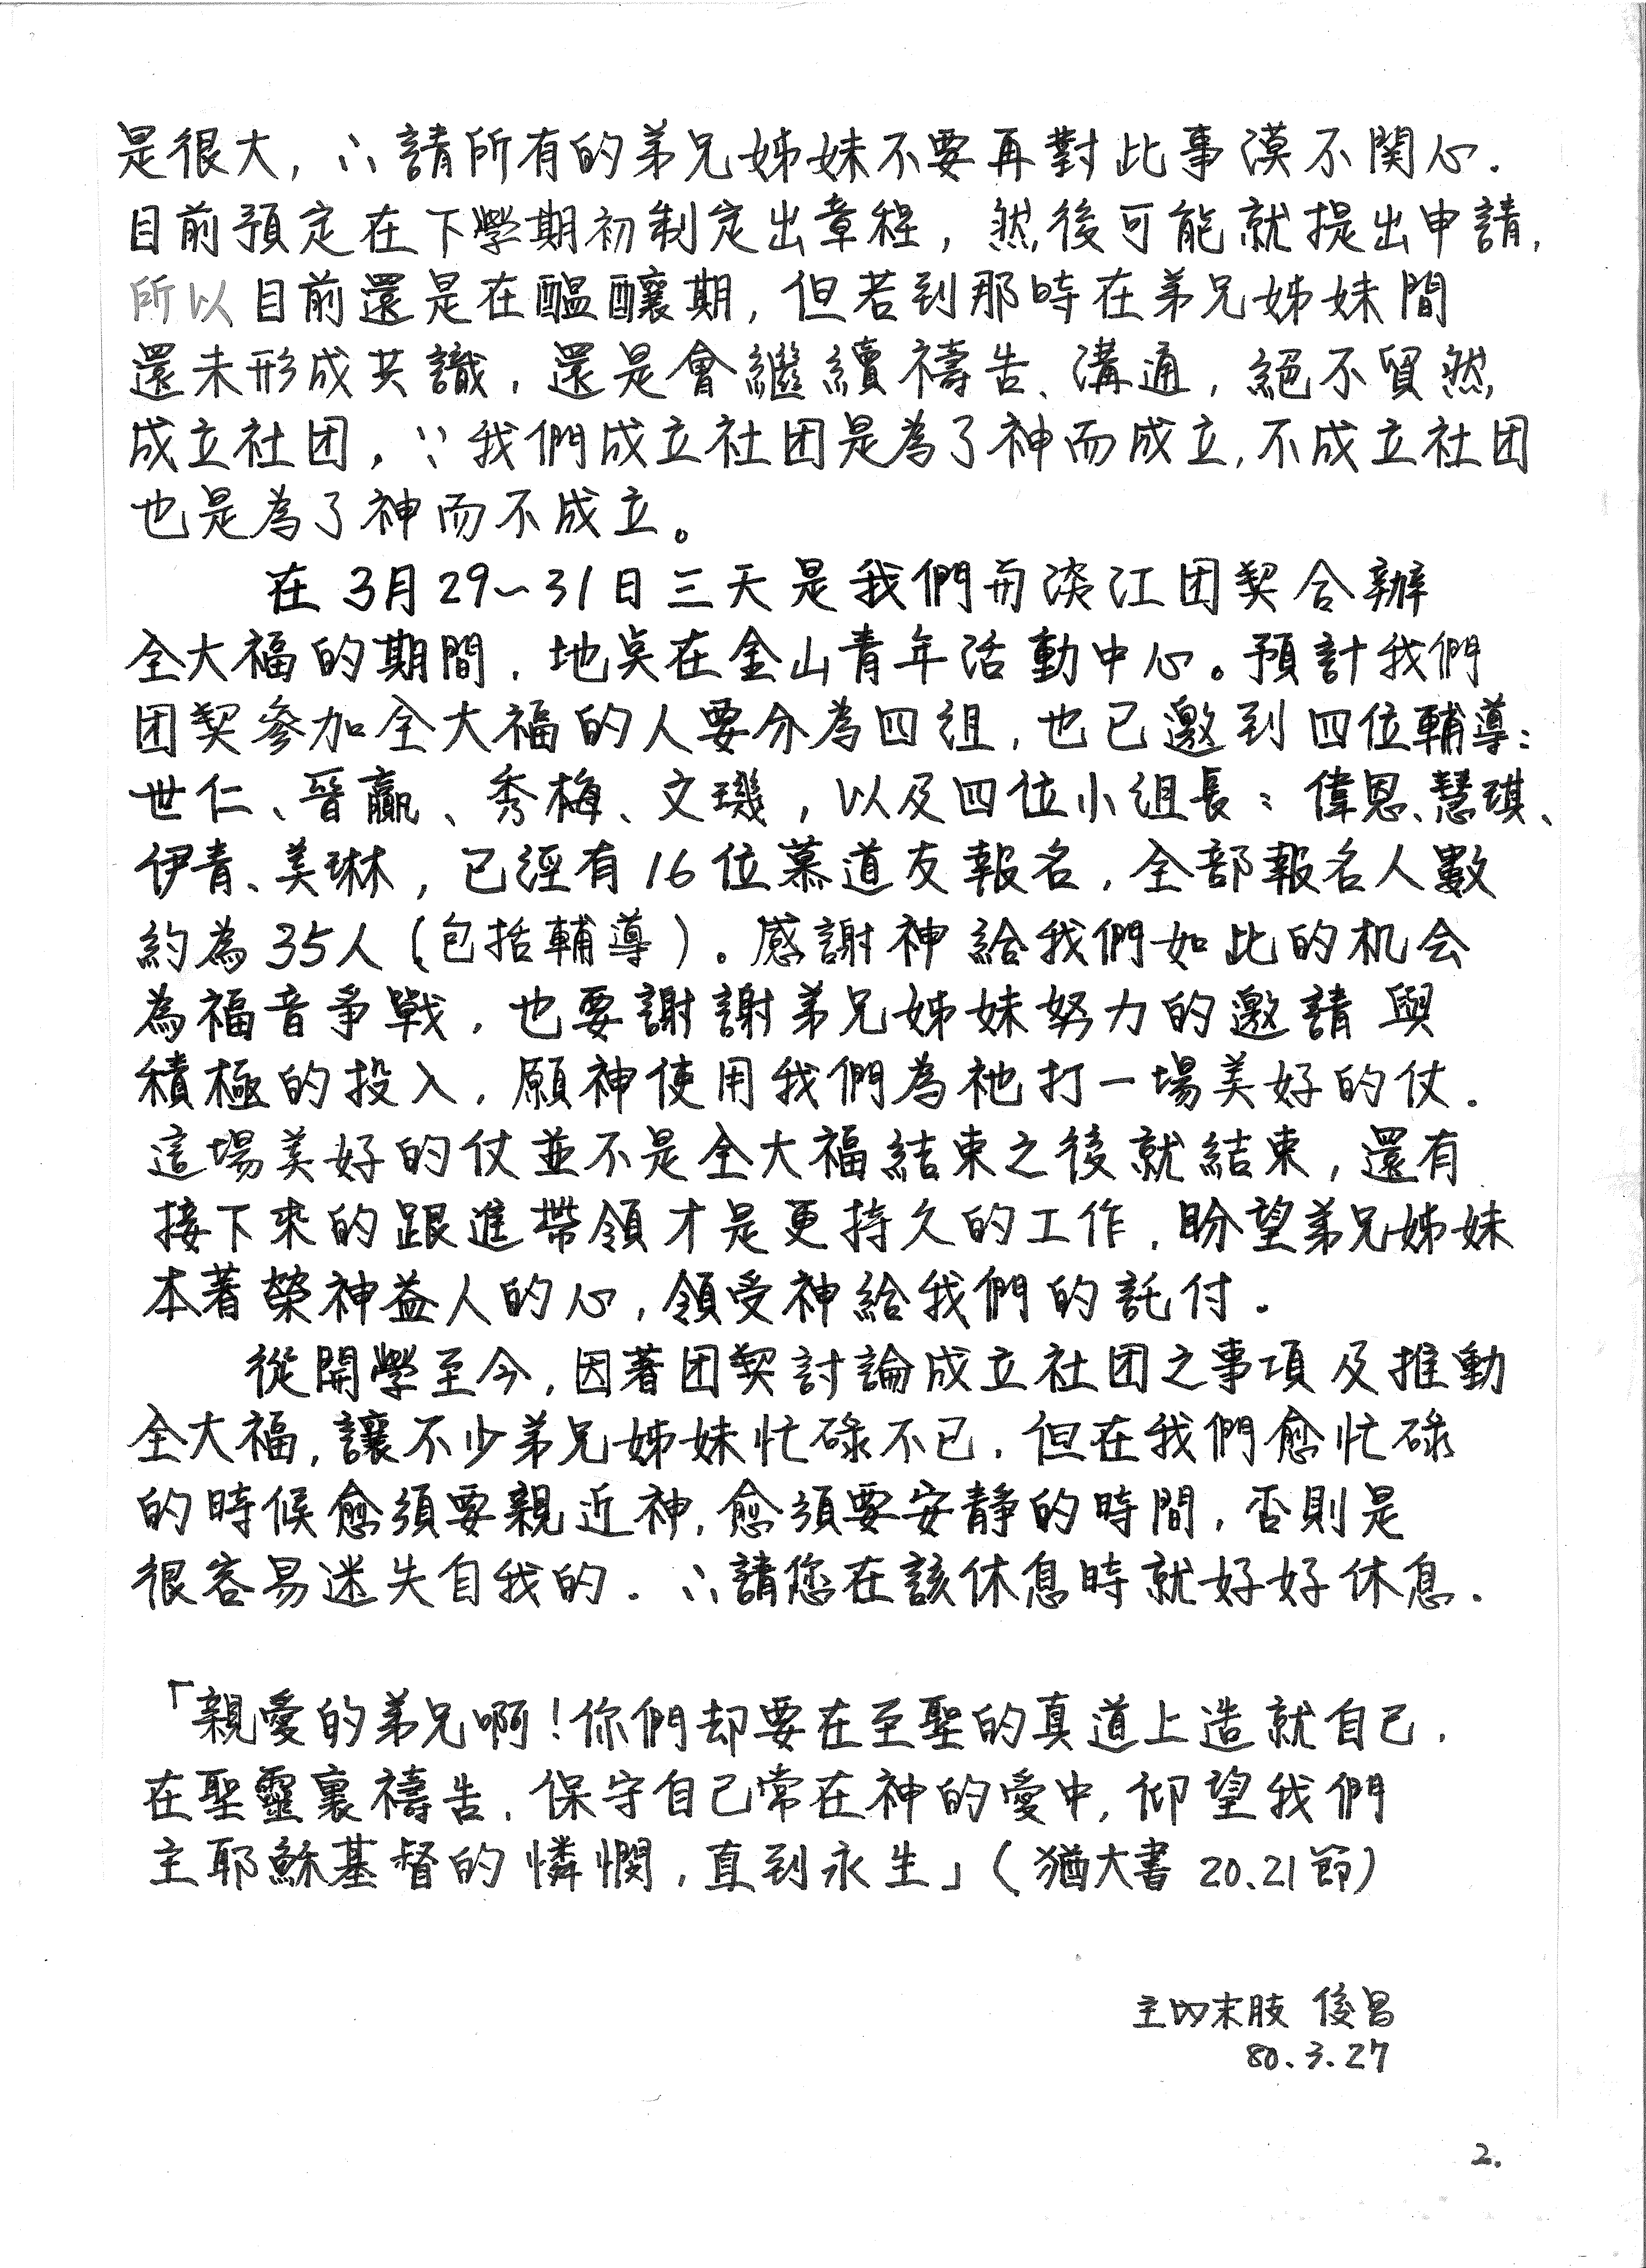 是很大，∴請所有的弟兄姊妹不要再對此事漠不関心．
目前預定在下學期初制定出章程，然後可能就提出申請，
所以目前還是在醞釀期，但若到那時在弟兄姊妹間
還未形成共識，還是會繼續禱告、溝通，絕不貿然
成立社団，∵我們成立社団是為了神而成立，不成立社団
也是為了神而不成立。
在3月29～31日三天是我們而淡江団契合辦
全大福的期間，地点在金山青年活動中心。預計我們
団契參加全大福的人要分為四組，也已邀到四位輔導：
世仁、晉贏、秀梅、文璣，以及四位小組長：偉恩、慧琪、
伊青、美琳，已經有16位慕道友報名，全部報名人數
約為35人（包括輔導）。感謝神給我們如此的机会
為福音爭戰，也要謝謝弟兄姊妹努力的邀請與
積極的投入，願神使用我們為祂打一場美好的仗．
這場美好的仗並不是全大福結束之後就結束，還有
接下來的跟進帶領才是更持久的工作，盼望弟兄姊妹
本著榮神益人的心，領受神給我們的託付．
從開學至今，因著団契討論成立社団之事項及推動
全大福，讓不少弟兄姊妹忙碌不已．但在我們愈忙碌
的時候愈須要親近神，愈須要安靜的時間，否則是
很容易迷失自我的．∴請您在該休息時就好好休息．
「親愛的弟兄啊！你們却要在至聖的真道上造就自己，
在聖靈裏禱告，保守自己常在神的愛中，仰望我們
主耶穌基督的憐憫，直到永生」（猶大書 20、21節）
主內末肢 俊昌
80.3.27
2.